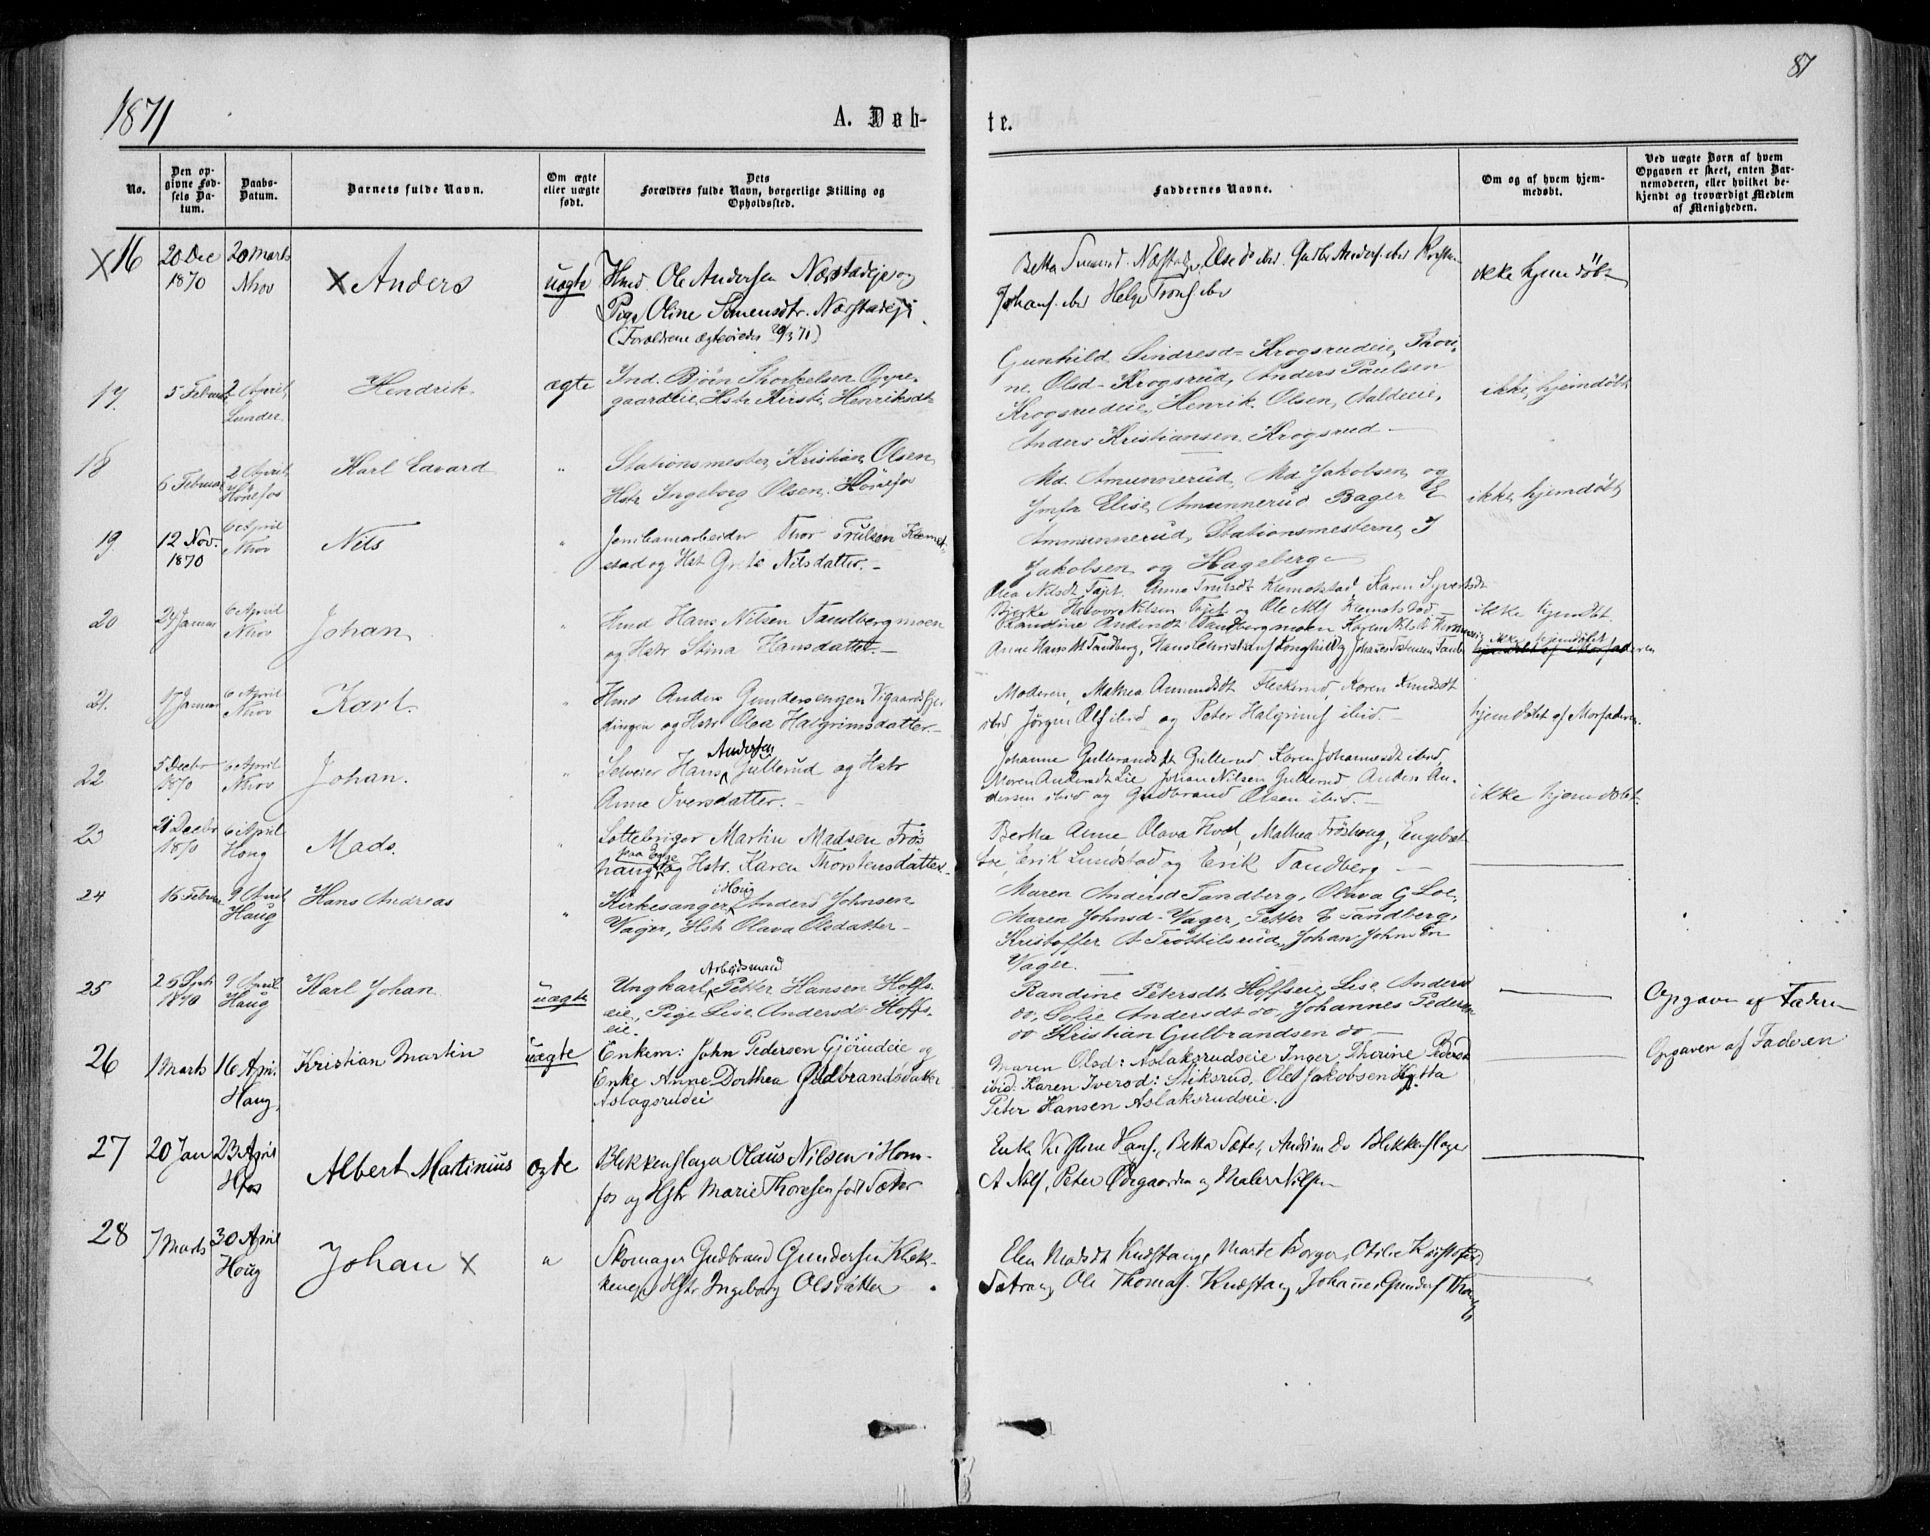 87
1871
A. Døb-
te.
No.
Den op-
givne Fød-
sels Da-
tum.
Daabs-
Datum.
Barnets fulde Navn.
Om ægte
eller uægte
født.
Dets
Forældres fulde Navn, borgerlige Stilling og
Opholdssted.
Faddernes Navne.
Om og af hvem hjem-
medøbt.
Ved uægte Børn af hvem
Opgaven er skeet, enten Bar-
nemoderen, eller hvilket be-
kjendt og troværdigt Medlem
af Menigheden.
X 16
20 Dec
1870
20 Marts
Nhov
X Anders
uægte
Hmd. Ole Andersen Næstadeje og
Pige Oline Simensdtr. Næstadeje
(Forældrene ægteviedes 20/3 71)
Johans. ibd Helge Trons. ibd
ikke hjemdöbt
17.
5 Februar
2 April
Lunder
Hendrik
ægte
Ind. Bjørn Thorkelsen Oppe-
gaardeie, Hstr Kirsti Henriksdt
Gunhild Sindresd- Krogsrudeie, Thori-
ne Olsd- Krogsrud, Anders Paulsen
Krogsrudeie, Henrik Olsen, Aaldeie,
Anders Kristiansen Krogsrud -
ikke hjemdøbt
18
6 Februar
2 April
Hönefos
Karl Edvard
"
Stationsmester Kristian Olsen
Hstr Ingeborg Olsen. Hönefos
Md. Amunnerud, Md Jakobsen og
Jmfr Elise Amunnerud Bager E
Ammunnerud, Stationsmesterne J
Jakobsen og Hageberg
ikke hjemdøbt
19
12 Nov.
1870
6 April
Nhov
Nils
"
Jernbanearbeider Thor Trulsen Klemet-
stad og Hst Grete Nilsdatter. -
Olea Nilsdt Fajet. Anne Trulsdt Klemetstad, Karen Syvertsdt
Bjerke Halvor Nilsen Fajet og Ole Nils. Klemetstad
ikke hjemdøbt.
20
24 Januar
6 April
Nhov
Johan
"
Hmd Hans Nilsen Tandbergmoen
og Hstr Stina Hansdatter -
Randine Andersdt Tandbergmoen Karen
Anne Hans M Tandberg, Hans Christians.
ikke hjemdøbt
hjemdøbt af Morfaderen
21.
17 Januar
6 April
Nhov
Karl.
"
Hmd Anders Gundersengen Vigaards
dingen og Hstr Olea Halgrimsdatter. -
Moderen, Mathea Amundsdt Fleskerud, Karen Knudsdt
ibid Jørgen Ols. ibid og Peter Halgrims. ibid. -
hjemdøbt af Morfaderen
22
5 Decbr
1870
6 April
Nhov
Johan.
"
Selveier Hans Andersen Gullerud og Hstr
Anne Iversdatter. -
Johanne Gulbrandsdt Gullerud Karen Johannesdt ibid,
Maren Andersdt Lie Johan Nilsen Gullerud Anders An-
dersen ibid og Gudbrand Olsen ibid. -
ikke hjemdøbt
23
21 Decbr
1870
6 April
Houg
Mads.
"
Lottebruger Martin Madsen Frøs
haug paa Eie og Hstr. Karen Thorstensdatter -
Berthe Anne Olava Hval, Mathea Frøshoug, Engebret
Erik Lundstad og Erik Tandberg -
24
16 Februar
9 April
Haug
Hans Andreas
"
Kirkesanger i Houg Anders Johnsen
Vager, Hstr Olava Olsdatter -
Maren Andersd Tandberg, Olava G Loe,
Maren Johnsd- Vager, Petter E Tandberg,
Kristoffer A Trøttilsrud, Johan Johnsen
Vager.
25
25 Sept
1870
9 April
Haug
Karl Johan
uægte
Ungkarl Arbeidsmand Petter Hansen Hoffs-
eie, Pige Lise Andersdt Hoffs-
eie.
Randine Petersdt Hoffseie Lise Andersd
do, Sofie Andersdt do, Johannes Pedersen
do Kristian Gulbrandsen do -
Opgaven af Faderen
26
1 Marts
16 Apr.
Haug,
Kristian Martin
uægte
Enkem: John Pedersen Gjörudeie og
Enke Anne Dorthea Guldbrandsdatter
Aslagsrudei
Maren Olsd: Aslaksrudseie Inger Thorine Pedersd
ibid. Karen Iversd: Stiksrud, Ole Jakobsen Hytta
Peter Hansen Aslaksrudseie.
Opgaven af Faderen
27
20 Jan
23 April
Hfos
Albert Martinius
ægte
Blikkenslager Olaus Nilsen i Høn-
fos og Hstr Marie Thoresen født Sæter
A Nils., Peter Øvregaarden og Maler Nilsen
28
7 Marts
30 April
Houg
Johan X
"
Skomager Gudbrand Gundersen Klæk-
kene, Hstr Ingeborg Olsdatter
Elen Madsdt Knæstang, Marte Borger, Otilie Kristofersd
Sætrang, Ole Thomas. Knæstang, Johannes Gunders.